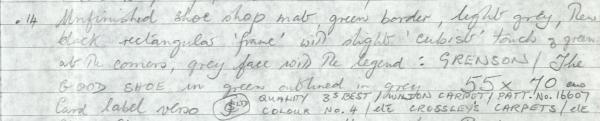 .14 Unfinished shoe shop mat green border, light grey, then
black rectangular 'frame' with slight 'cubist' touch of green
at the corners, grey face with the legend: GRENSON / The
GOOD SHOE in green outlined in grey 55 x 70 cms
Card label verso QUALITY 3S BEST / WILTON CARPET / PATT. No. 16607
COLOUR No. 4 / etc CROSSLEY'S CARPETS / etc